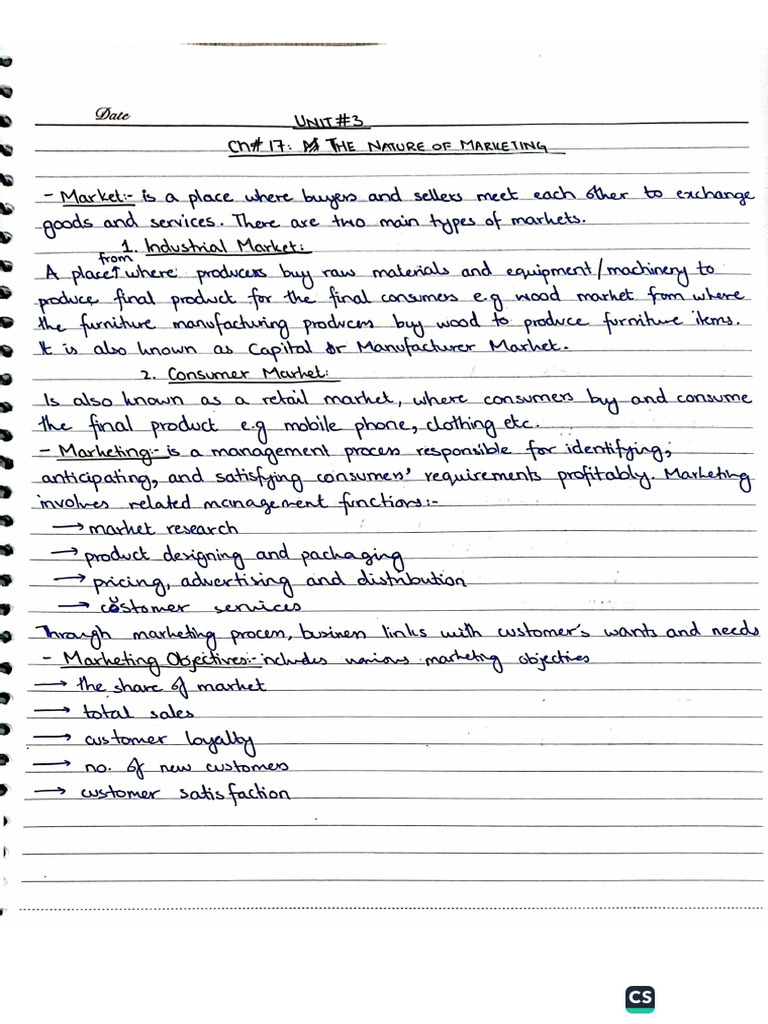 Date
UNIT#3
Ch# 17: THE NATURE OF MARKETING
- Market:- is a place where buyers and sellers meet each other to exchange
goods and services. There are two main types of markets.
1. Industrial Market:
from
A place where producers buy raw materials and equipment/machinery to
produce final product for the final consumers e.g wood market from where
the furniture manufacturing producers buy wood to produce furniture items.
It is also known as Capital or Manufacturer Market.
2. Consumer Market:
Is also known as a retail market, where consumers buy and consume
the final product e.g mobile phone, clothing etc.
- Marketing:- is a management process responsible for identifying,
anticipating, and satisfying consumers' requirements profitably. Marketing
involves related management functions:-
→ market research
→ product designing and packaging
→ pricing, advertising and distribution
→ customer services
Through marketing process, business links with customer's wants and needs
- Marketing Objectives:- includes various marketing objectives
→ the share of market
→ total sales
→ customer loyalty
→ no. of new customers
→ customer satisfaction
CS